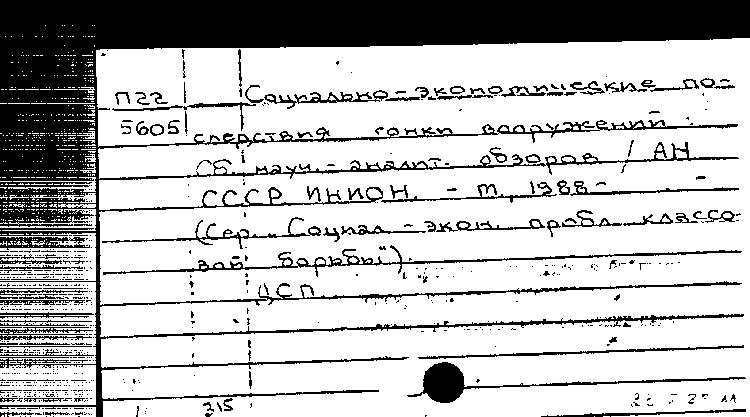 П22 Социально-экономические по-
5605 следствия гонки вооружений :
Сб. науч.-аналит. обзоров / АН
СССР ИНИОН. - М., 1988 -
(Сер. "Социал-экон. пробл. классо-
вой борьбы").
ЦСП
315